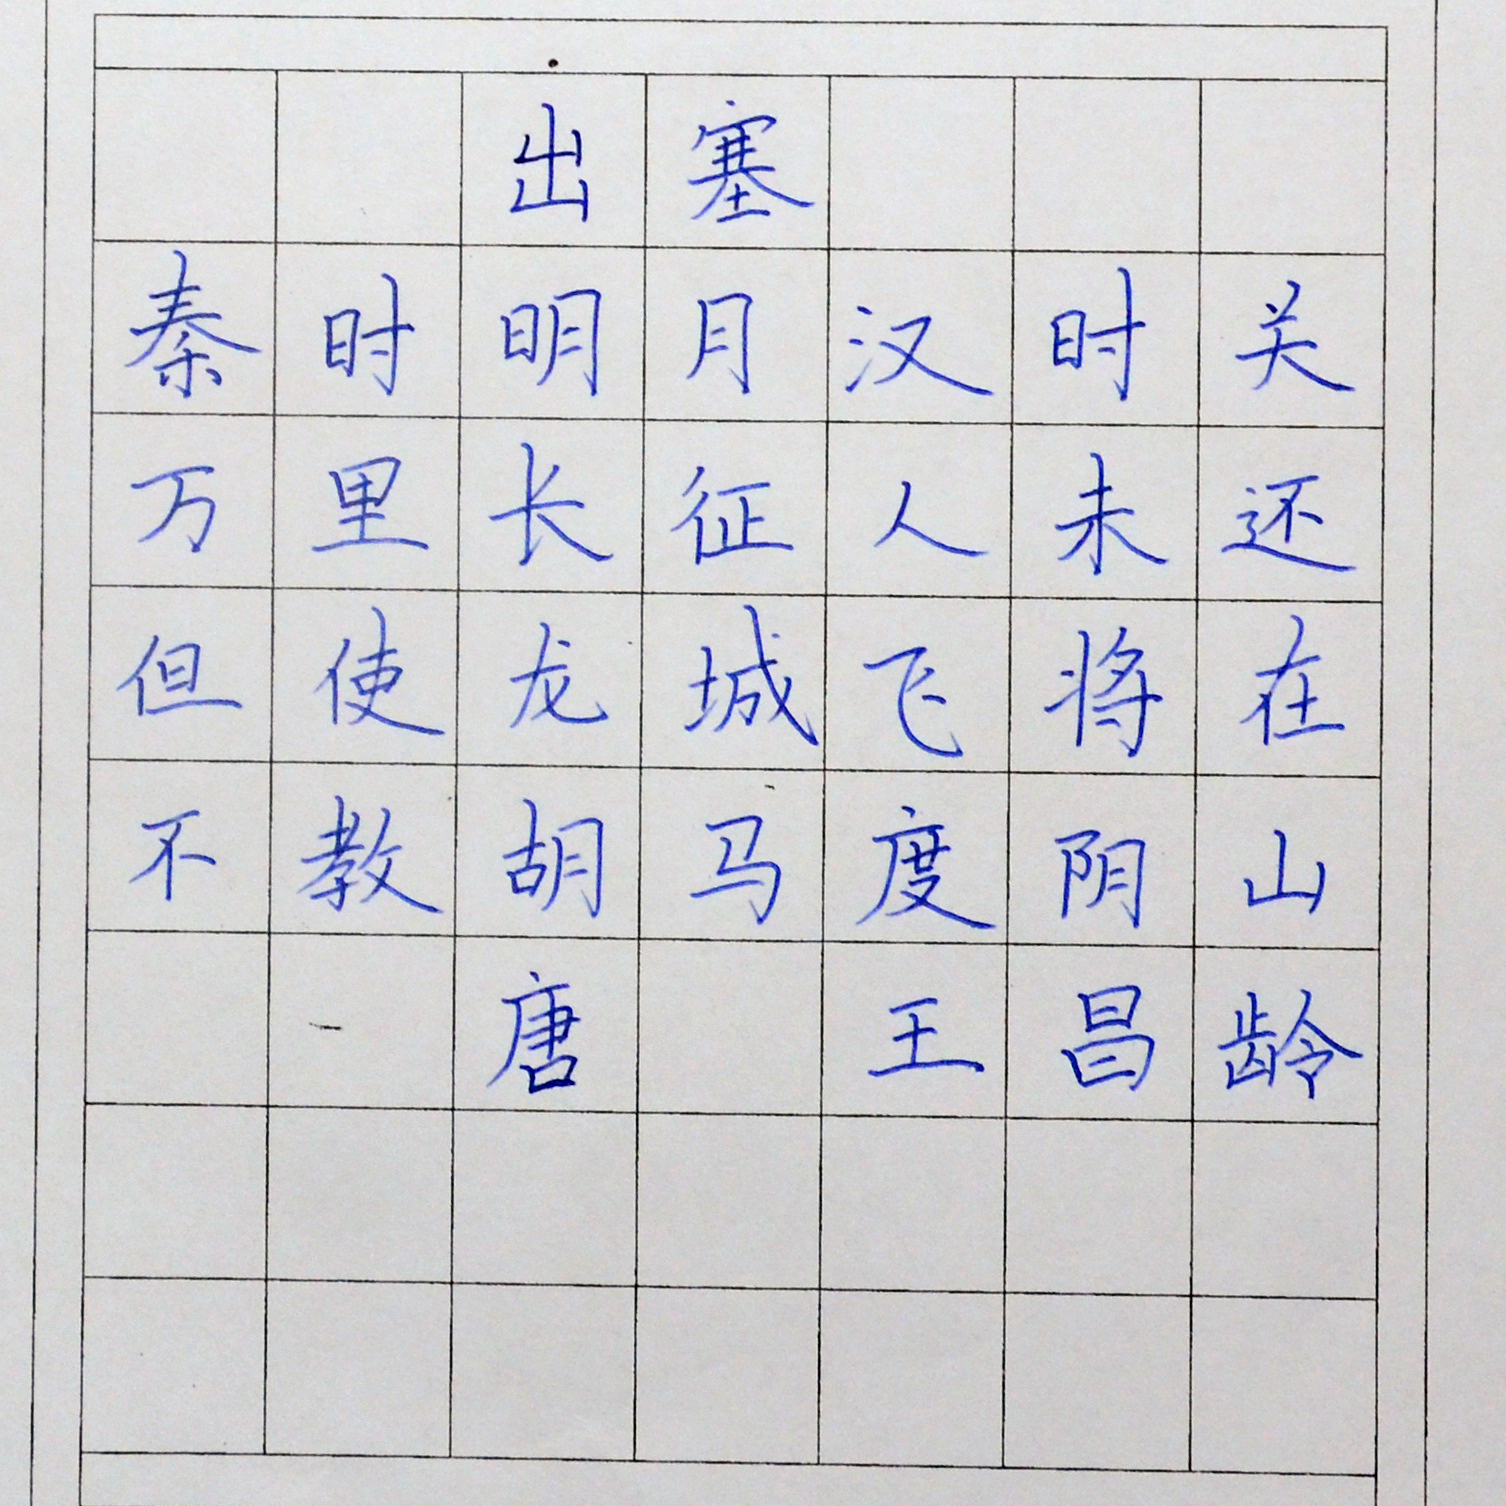 出塞
秦时明月汉时关
万里长征人未还
但使龙城飞将在
不教胡马度阴山
唐 王昌龄